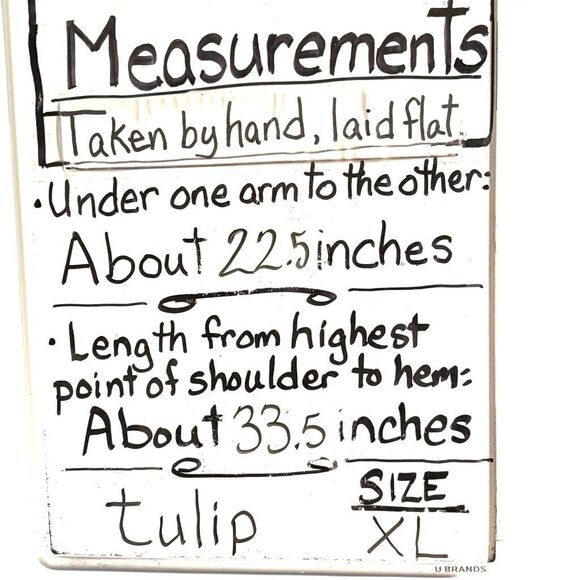 Measurements
Taken by hand, laid flat.
• Under one arm to the other:
About 22.5 inches
• Length from highest
point of shoulder to hem:
About 33.5 inches
SIZE
tulip XL
U BRANDS